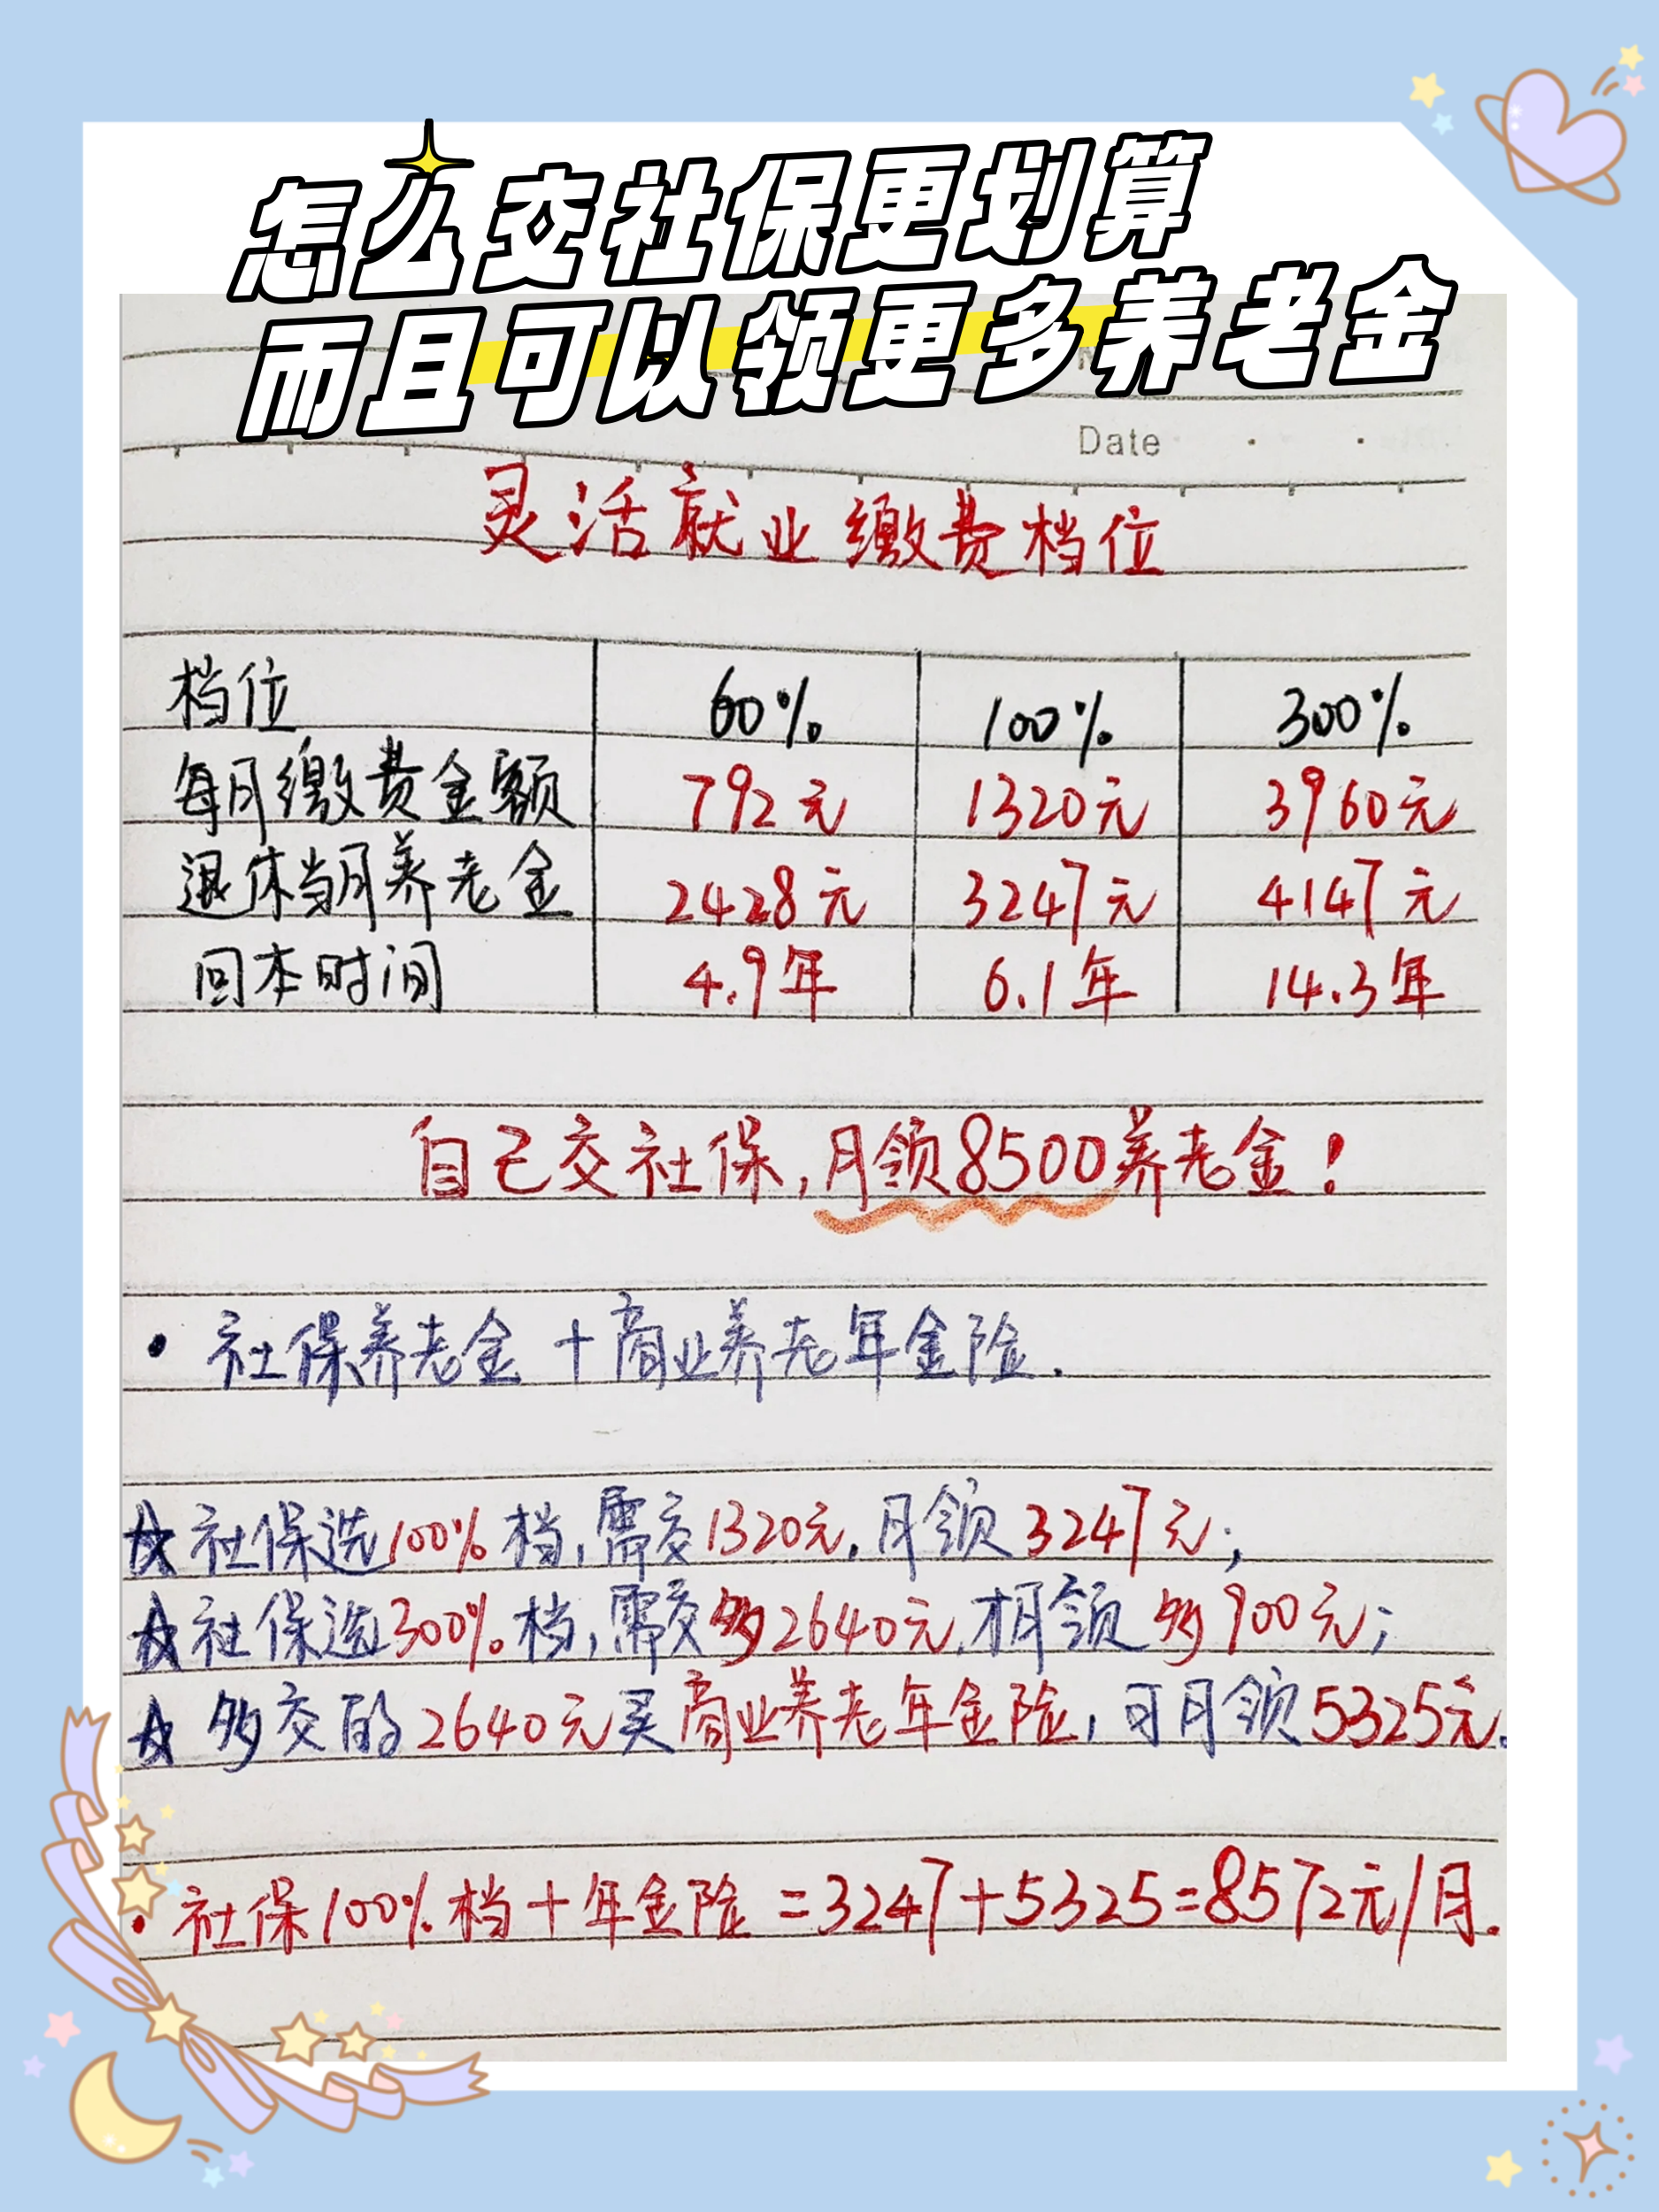 怎么交社保更划算
而且可以领更多养老金
Date
灵活就业缴费档位
档位 60% 100% 300%
每月缴费金额 792元 1320元 3960元
退休当月养老金 2428元 3247元 4147元
回本时间 4.9年 6.1年 14.3年
自己交社保,月领8500养老金!
· 社保养老金+商业养老年金险.
☆社保选100%档,需交1320元,月领3247元;
☆社保选300%档,需交多2640元,月领多900元;
☆多交的2640元买商业养老年金险,可月领5325元.
·社保100%档+年金险=3247+5325=8572元/月.